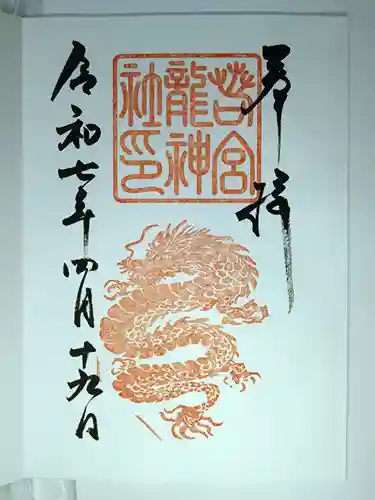 奉拝
若宮
龍神
社印
令和七年四月十九日